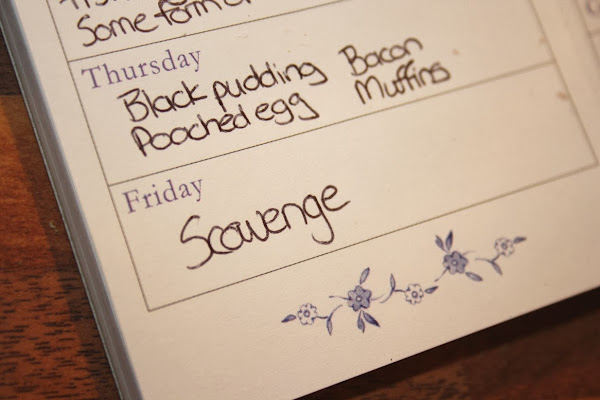 Some form of
Thursday
Black pudding Bacon
Pooched egg Muffins
Friday
Scavenge